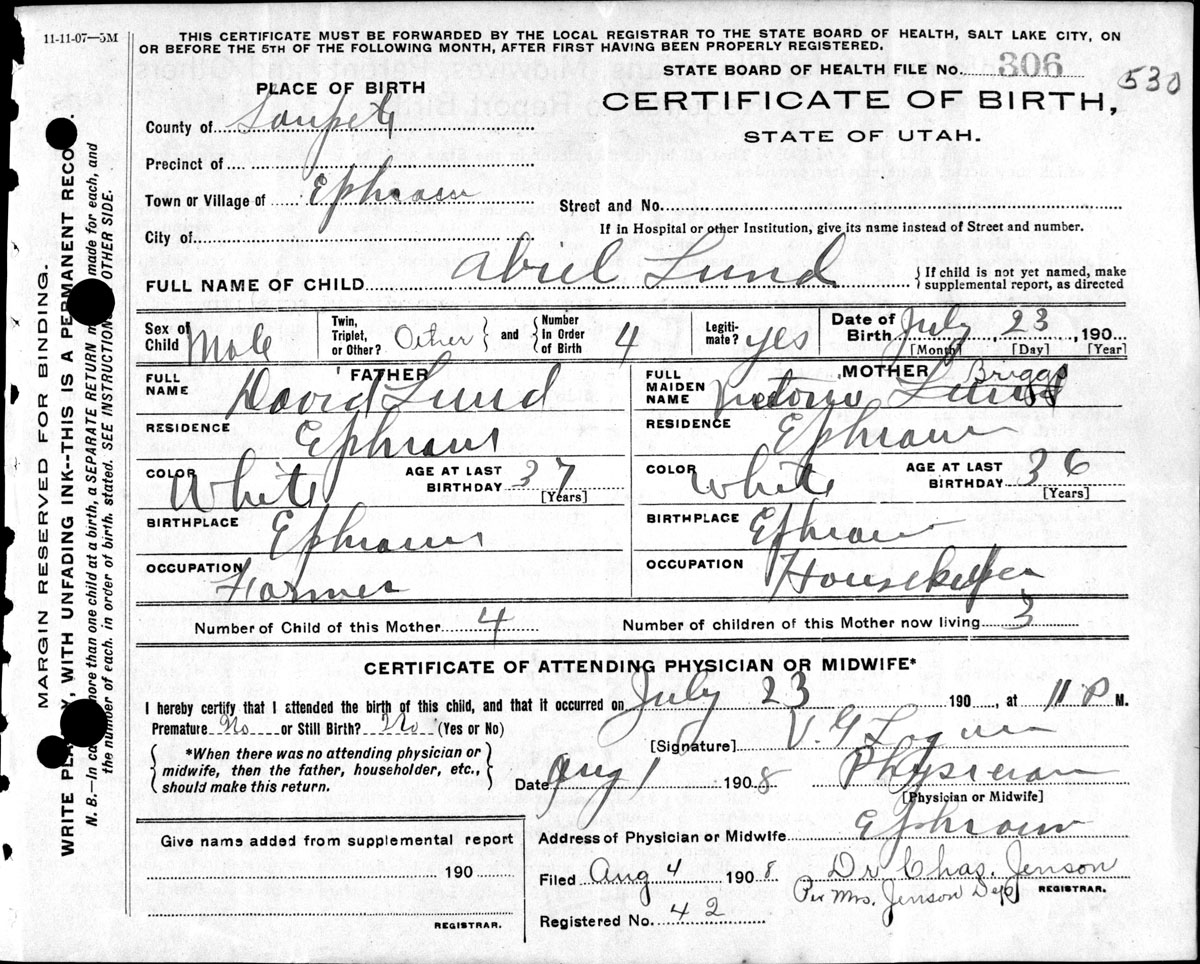 11-11-07—5M
THIS CERTIFICATE MUST BE FORWARDED BY THE LOCAL REGISTRAR TO THE STATE BOARD OF HEALTH, SALT LAKE CITY, ON
OR BEFORE THE 5TH OF THE FOLLOWING MONTH, AFTER FIRST HAVING BEEN PROPERLY REGISTERED.
STATE BOARD OF HEALTH FILE No. 306
530
PLACE OF BIRTH
CERTIFICATE OF BIRTH,
STATE OF UTAH.
County of Sanpete
Precinct of
Town or Village of Ephraim
Street and No.
City of
If in Hospital or other Institution, give its name instead of Street and number.
FULL NAME OF CHILD Abiel Lund
{If child is not yet named, make
supplemental report, as directed
Sex of Child Male
Twin, Triplet, or Other? Other } and { Number in Order of Birth 4
Legitimate? yes
Date of Birth July 23, 190
[Month] [Day] [Year]
FATHER
FULL NAME David Lund
RESIDENCE Ephraim
COLOR White
AGE AT LAST BIRTHDAY 37
[Years]
BIRTHPLACE Ephraim
OCCUPATION Farmer
MOTHER
FULL MAIDEN NAME Briggs
RESIDENCE Ephraim
COLOR White
AGE AT LAST BIRTHDAY 36
[Years]
BIRTHPLACE Ephraim
OCCUPATION Housekeeper
Number of Child of this Mother 4
Number of children of this Mother now living 3
CERTIFICATE OF ATTENDING PHYSICIAN OR MIDWIFE*
I hereby certify that I attended the birth of this child, and that it occurred on July 23 190 , at 11 P M.
Premature No or Still Birth? No (Yes or No)
*When there was no attending physician or
midwife, then the father, householder, etc.,
should make this return.
[Signature] V. G.
Date Aug 1 1908
Physician
[Physician or Midwife]
Address of Physician or Midwife Ephraim
Give name added from supplemental report
190
REGISTRAR.
Filed Aug 4 1908
Dr. Chas. Jenson
Per Mrs. Jenson Dep
REGISTRAR.
Registered No. 42
MARGIN RESERVED FOR BINDING.
WRITE PLA , WITH UNFADING INK--THIS IS A PERMANENT RECO .
N. B.—In ca more than one child at a birth, a SEPARATE RETURN m made for each, and
the number of each, in order of birth, stated. SEE INSTRUCTION OTHER SIDE.